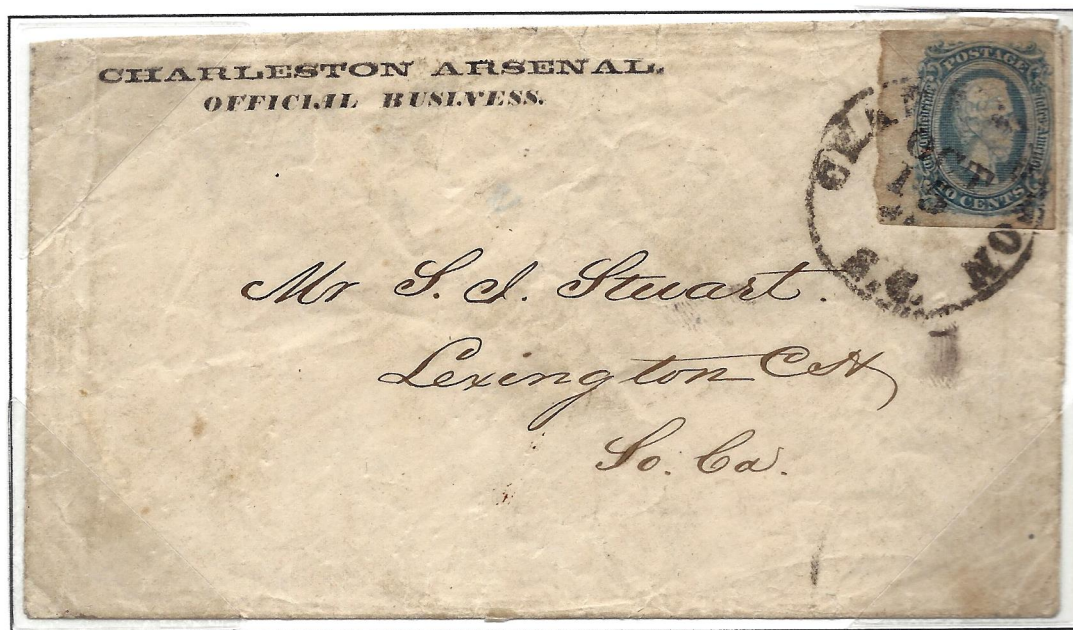 CHARLESTON ARSENAL.
OFFICIAL BUSINESS.
POSTAGE
TEN CENTS
OCT
15
S.C.
Mr S. J. Stuart.
Lexington C H
So. Ca.